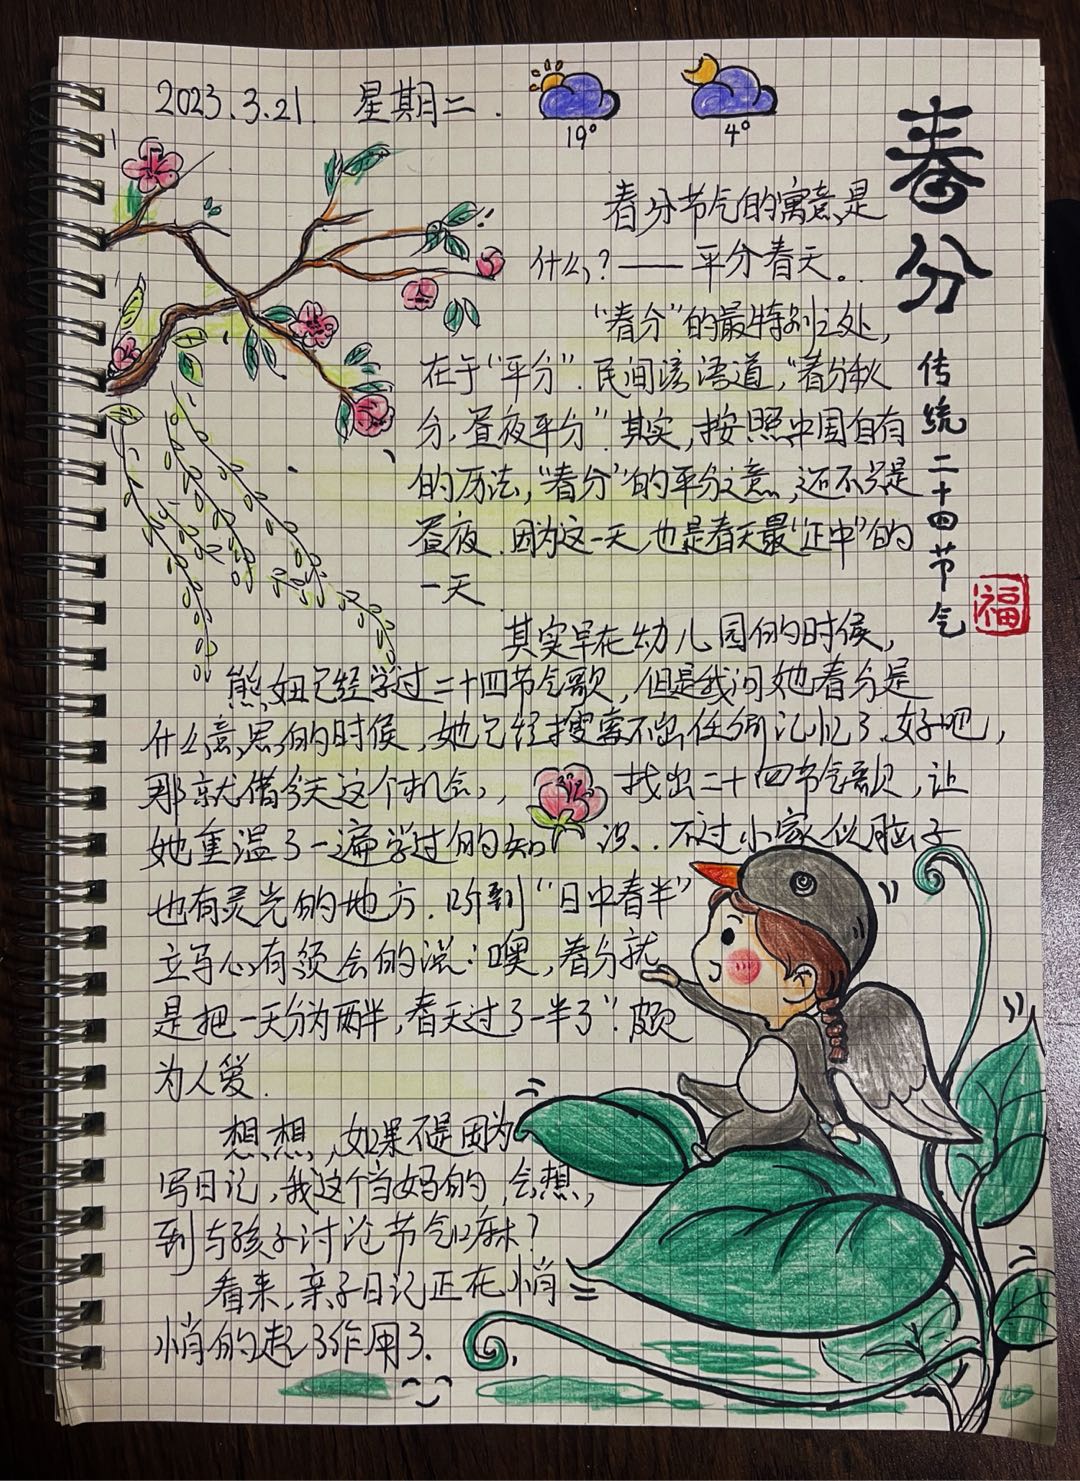 2023.3.21. 星期二.
19° 4°
春分
传统二十四节气
福
春分节气的寓意是
什么?——平分春天。
“春分”的最特别之处,
在于“平分”.民间谚语道,“春分秋
分,昼夜平分”其实,按照中国自有
的历法,“春分”的平分之意,还不只是
昼夜.因为这一天也是春天最“正中”的
一天
其实早在幼儿园的时候,
熊妞已经学过二十四节气歌,但是我问她春分是
什么意思的时候,她已经搜索不出任何记忆了.好吧,
那就借今天这个机会,找出二十四节气歌,让
她重温了一遍学过的知识..不过小家伙脑子
也有灵光的地方.听到“日中春半”
立马心有领会的说:噢,春分就
是把一天分为两半,春天过了一半了”.颇
为人爱.
想想,如果不是因为
写日记,我这个当妈的,会想,
到与孩子讨论节气嘛?
看来,亲子日记正在悄
悄的起了作用了.